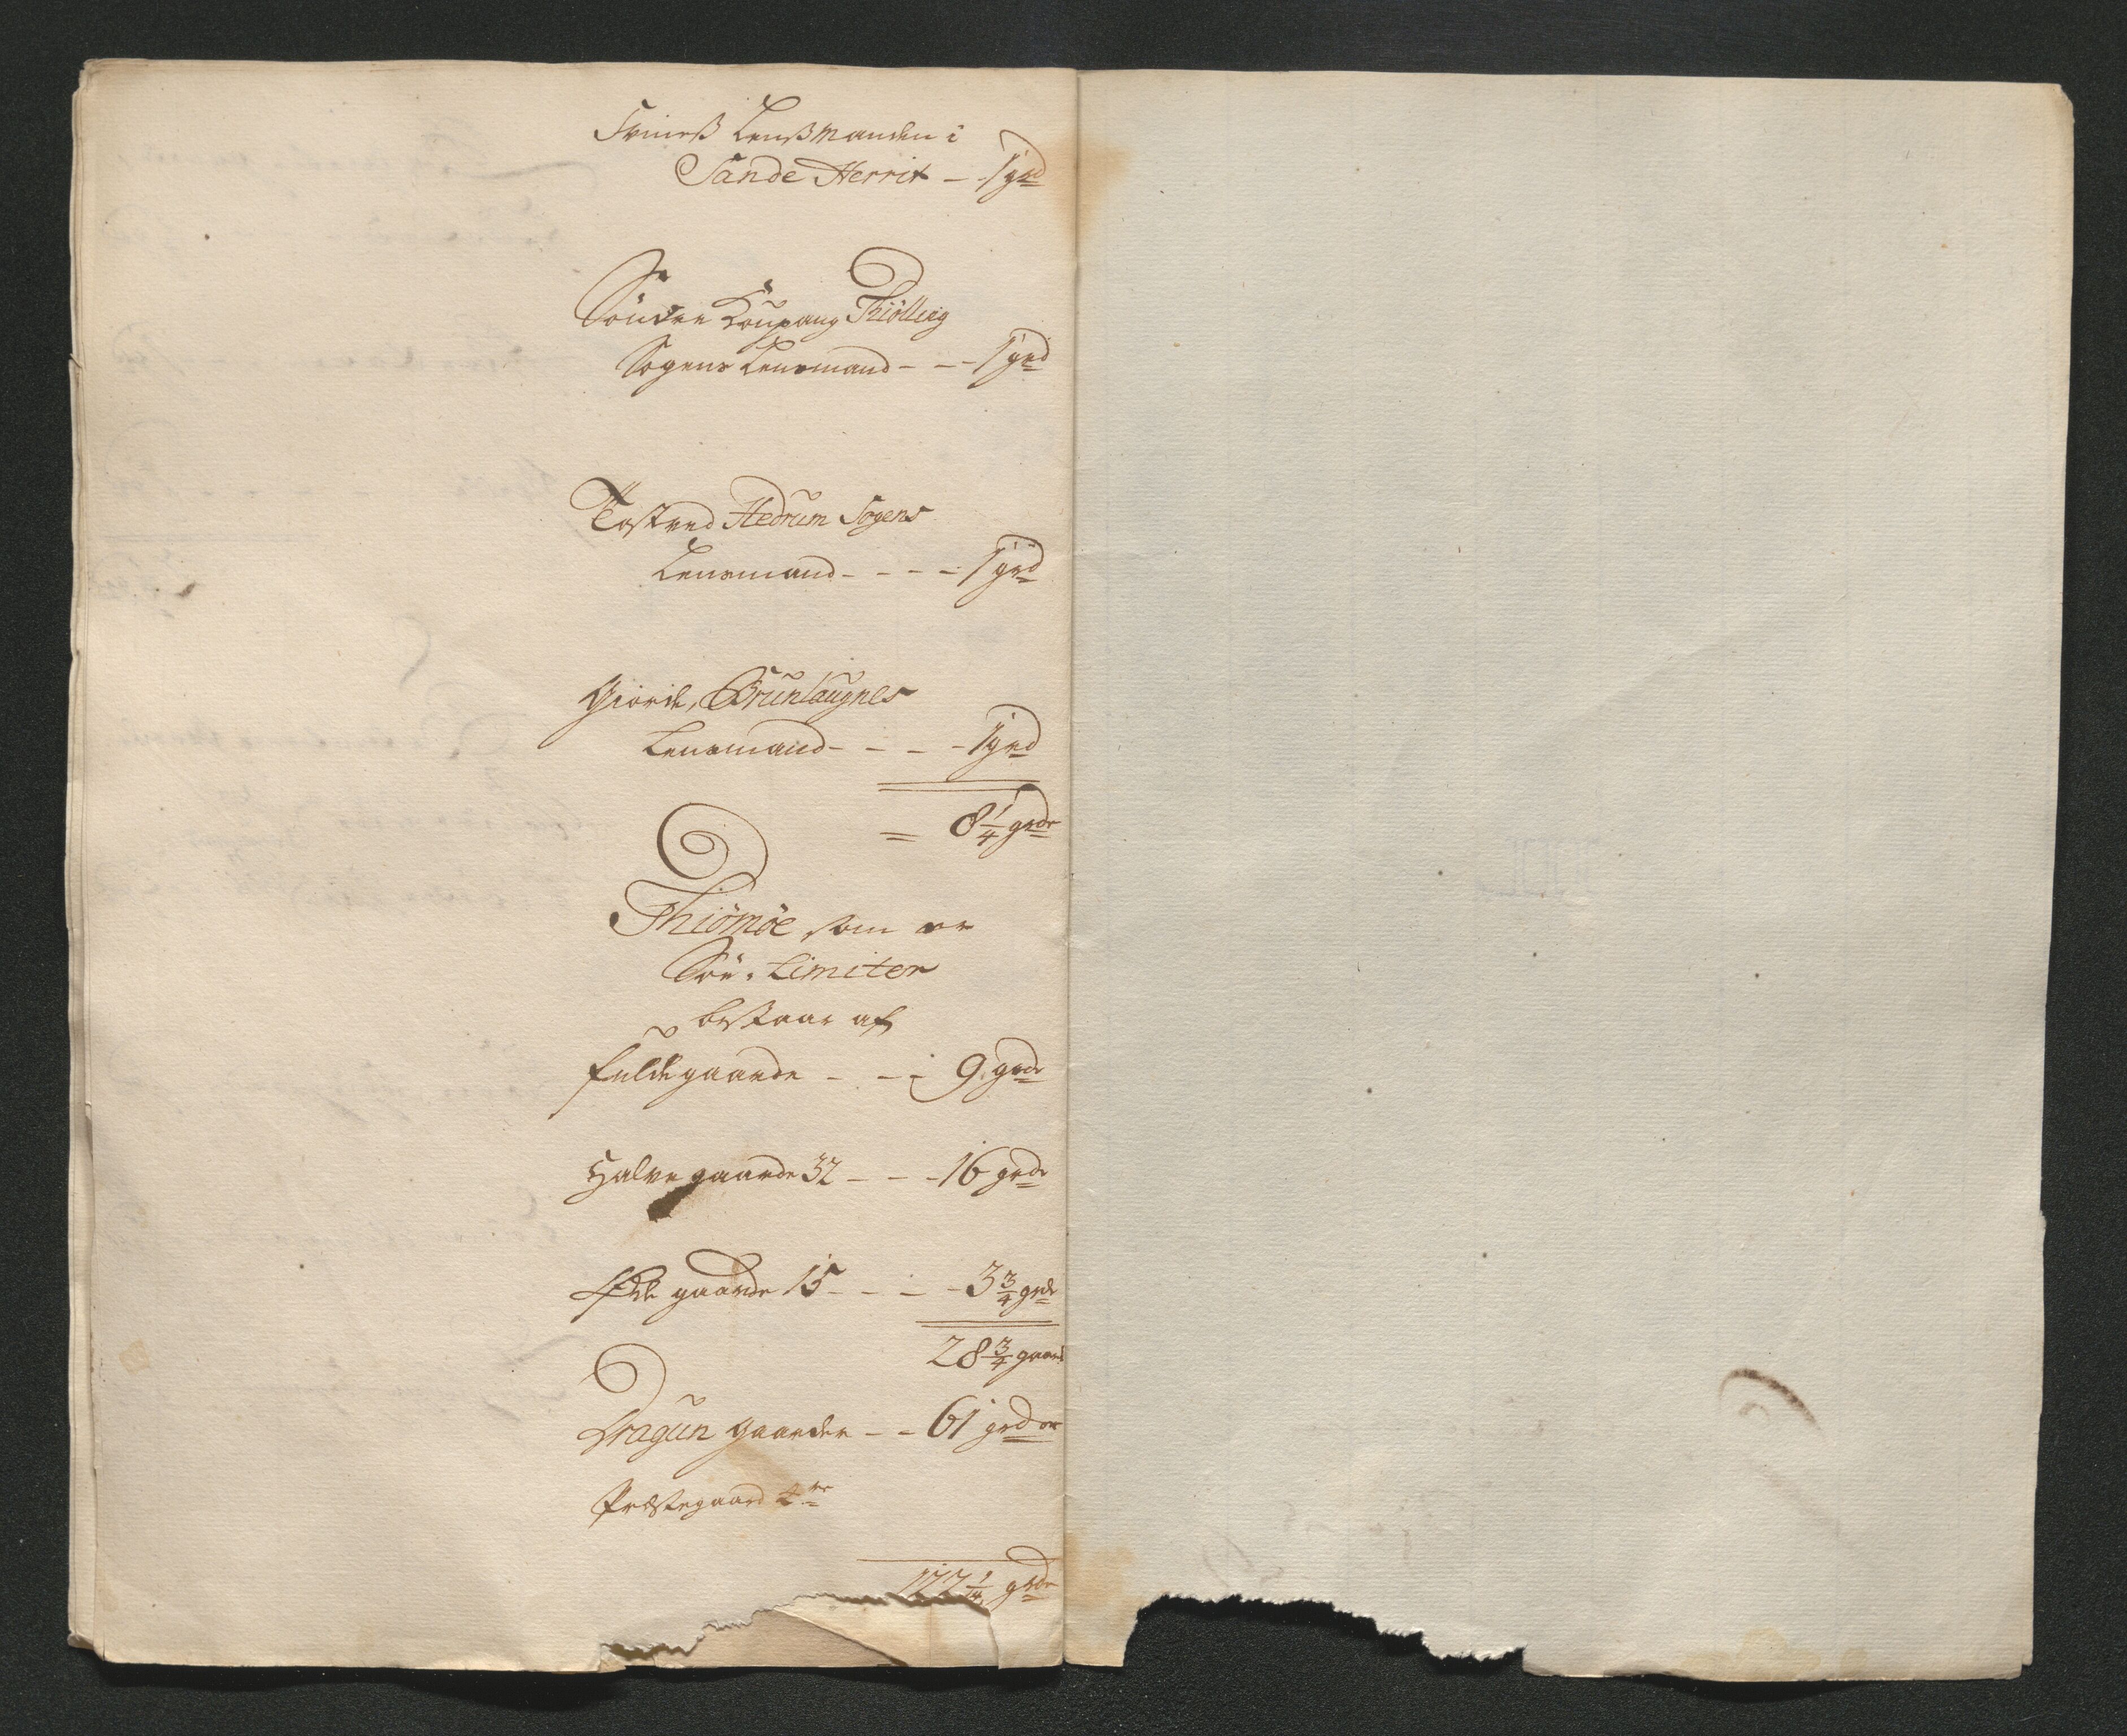 Sniness Lensmanden i
Sande Herrit - 1 grd
Sönder Kaupang Thiölling
Sogens Lensmand - - 1 grd
Tostved Hedrum Sogens
Lensmand - - - - 1 grd
Giorde, Brunlaugnes
Lensmand - - - - 1 grd
= 8 1/4 grdr
Thiömöe som er
Söe-Limiter
bestaar af
fulde gaarde - - - 9 grde
Halve gaarde 32 - - - 16 grde
Öde gaarde 15 - - - - 3 3/4 grde
28 3/4 gaard
Dragun gaarder - - 61 grder
Præstegaard
122 1/4 grde